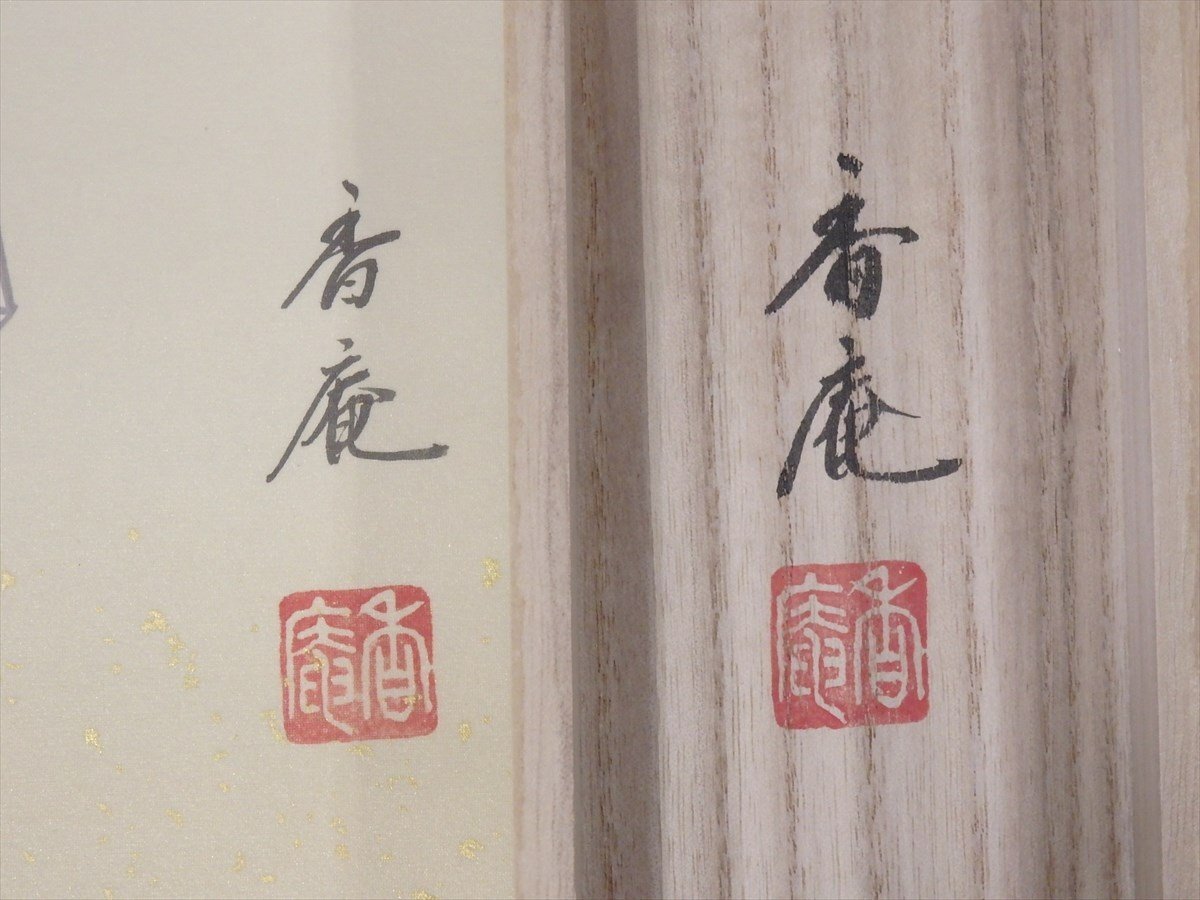 香庵
香庵
香庵
香庵